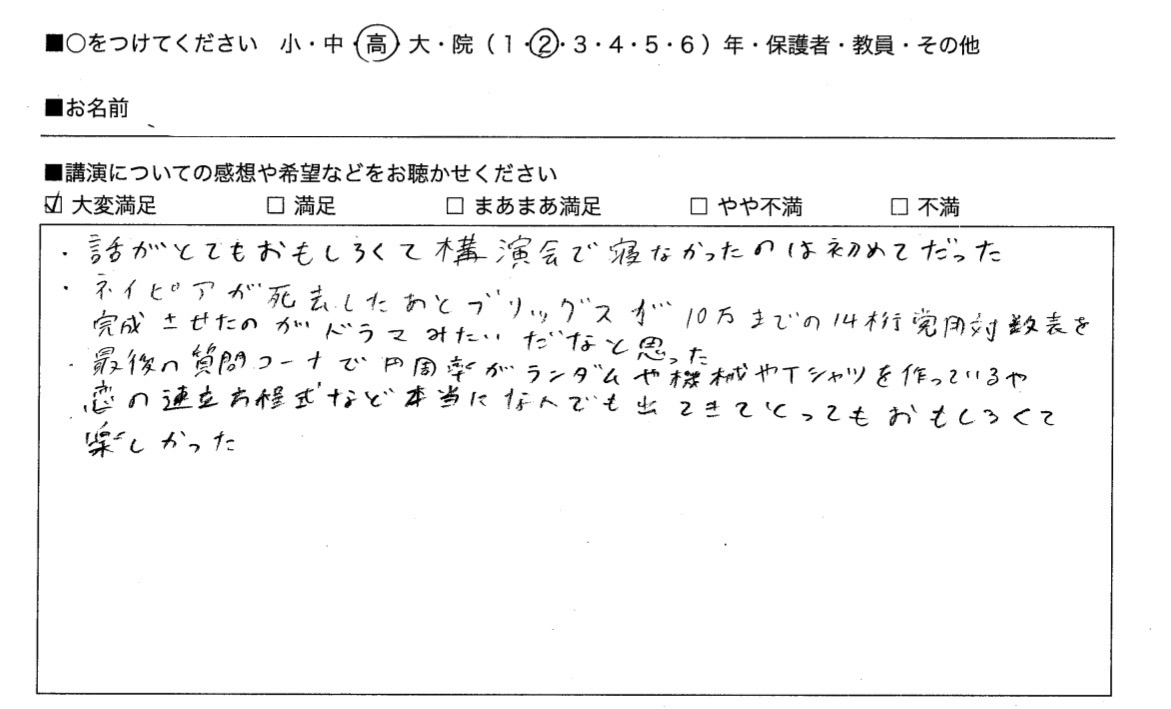 ■○をつけてください 小・中・高・大・院（1・2・3・4・5・6）年・保護者・教員・その他
■お名前
■講演についての感想や希望などをお聴かせください
☑ 大変満足 □ 満足 □ まあまあ満足 □ やや不満 □ 不満
・話がとてもおもしろくて構演会で寝なかったのは初めてだった
・ネイピアが死去したあとブリッグスが10万までの14桁常用対数表を
完成させたのがドラマみたいだなと思った
・最後の質問コーナで円周率がランダムや機械やTシャツを作っているや
恋の連立方程式など本当になんでも出てきてとってもおもしろくて
楽しかった